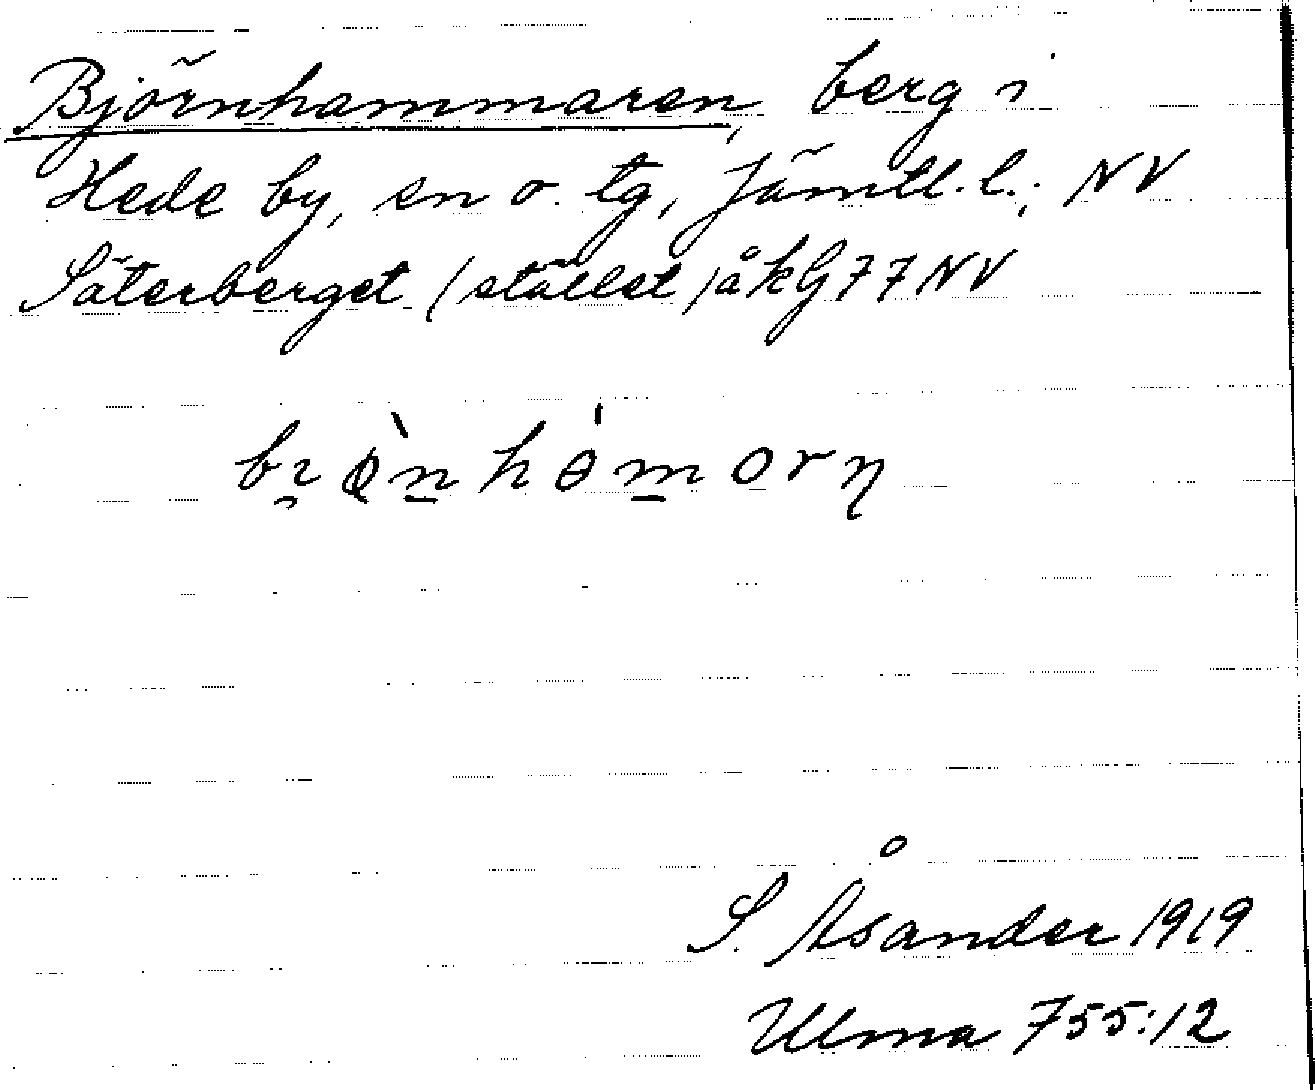 Björnhammaren, berg i
Hede by, sn o. tg, Jämtl. l.; NV
Säterberget (stället) åkG77NV
S. Åsander 1919
Ulma 755:12